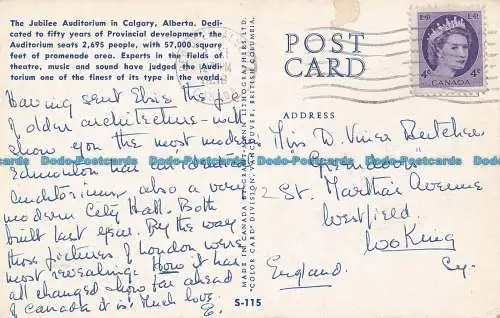 The Jubilee Auditorium in Calgary, Alberta. Dedi-
cated to fifty years of Provincial development, the
Auditorium seats 2,695 people, with 57,000 square
feet of promenade area. Experts in the fields of
theatre, music and sound have judged the Audi-
torium one of the finest of its type in the world.
Having sent Elsie the
of older architecture - will
show you the most modern
Edmonton has an identical
Auditorium, also a very
modern City Hall. Both
built last year. By the way
those pictures of London were
most revealing. How it has
all changed & how far ahead
of Canada it is. Much love
E.
S-115
MADE IN CANADA BY GRANT-MANN LITHOGRAPHERS LTD.
"COLOR CARD" DIVISION, VANCOUVER, BRITISH COLUMBIA.
POST
CARD
ADDRESS
E II R
4c
CANADA
4c
Miss D. Viner
"Greendoors"
2 St. Martha's Avenue
Westfield
Woking
Sy.
England.
Dodo-Postcards Dodo-Postcards Dodo-Postcards Dodo-Postcards Dodo-Postcards
Dodo-Postcards Dodo-Postcards Dodo-Postcards Dodo-Postcards Dodo-Postcards